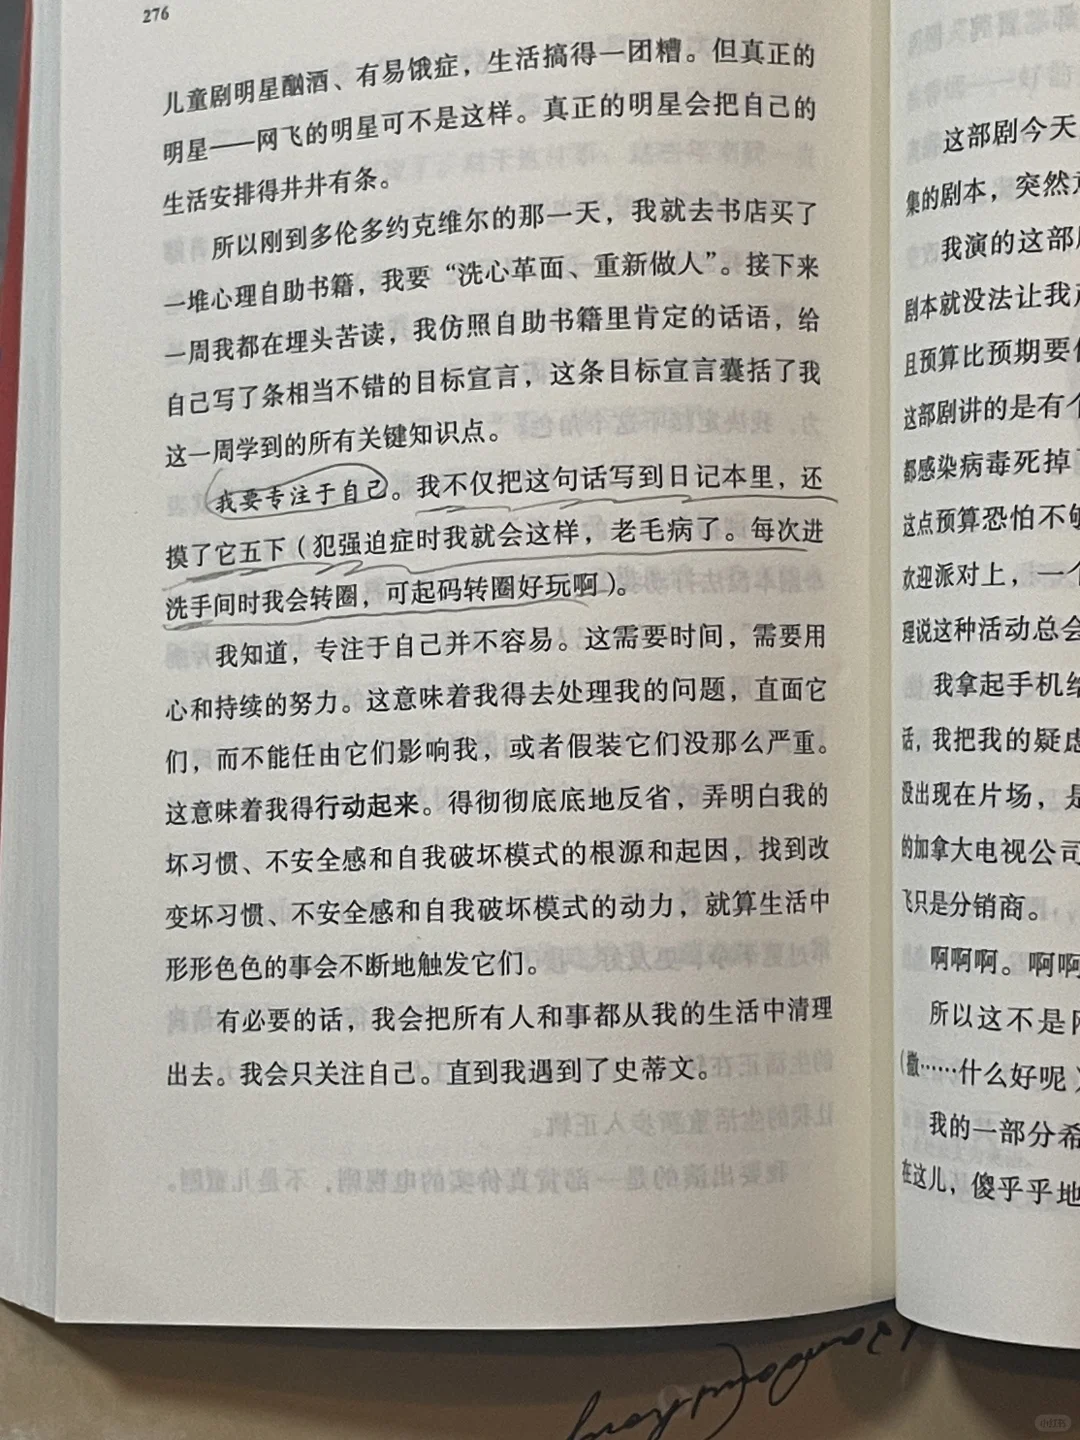 276
儿童剧明星酗酒、有易饿症，生活搞得一团糟。但真正的
明星——网飞的明星可不是这样。真正的明星会把自己的
生活安排得井井有条。
所以刚到多伦多约克维尔的那一天，我就去书店买了
一堆心理自助书籍，我要“洗心革面、重新做人”。接下来
一周我都在埋头苦读，我仿照自助书籍里肯定的话语，给
自己写了条相当不错的目标宣言，这条目标宣言囊括了我
这一周学到的所有关键知识点。
我要专注于自己。我不仅把这句话写到日记本里，还
摸了它五下（犯强迫症时我就会这样，老毛病了。每次进
洗手间时我会转圈，可起码转圈好玩啊）。
我知道，专注于自己并不容易。这需要时间，需要用
心和持续的努力。这意味着我得去处理我的问题，直面它
们，而不能任由它们影响我，或者假装它们没那么严重。
这意味着我得行动起来。得彻彻底底地反省，弄明白我的
坏习惯、不安全感和自我破坏模式的根源和起因，找到改
变坏习惯、不安全感和自我破坏模式的动力，就算生活中
形形色色的事会不断地触发它们。
有必要的话，我会把所有人和事都从我的生活中清理
出去。我会只关注自己。直到我遇到了史蒂文。
这部剧今天
集的剧本，突然
我演的这部
剧本就没法让我
且预算比预期要
这部剧讲的是有
都感染病毒死掉
这点预算恐怕不
欢迎派对上，一个
理说这种活动总会
我拿起手机给
话，我把我的疑虑
没出现在片场，是
的加拿大电视公司
飞只是分销商。
啊啊啊。啊啊
所以这不是
（撒……什么好呢
我的一部分希
在这儿，傻乎乎地